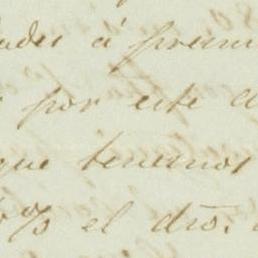 ades á prem
por este
que tenemos
% el dro.